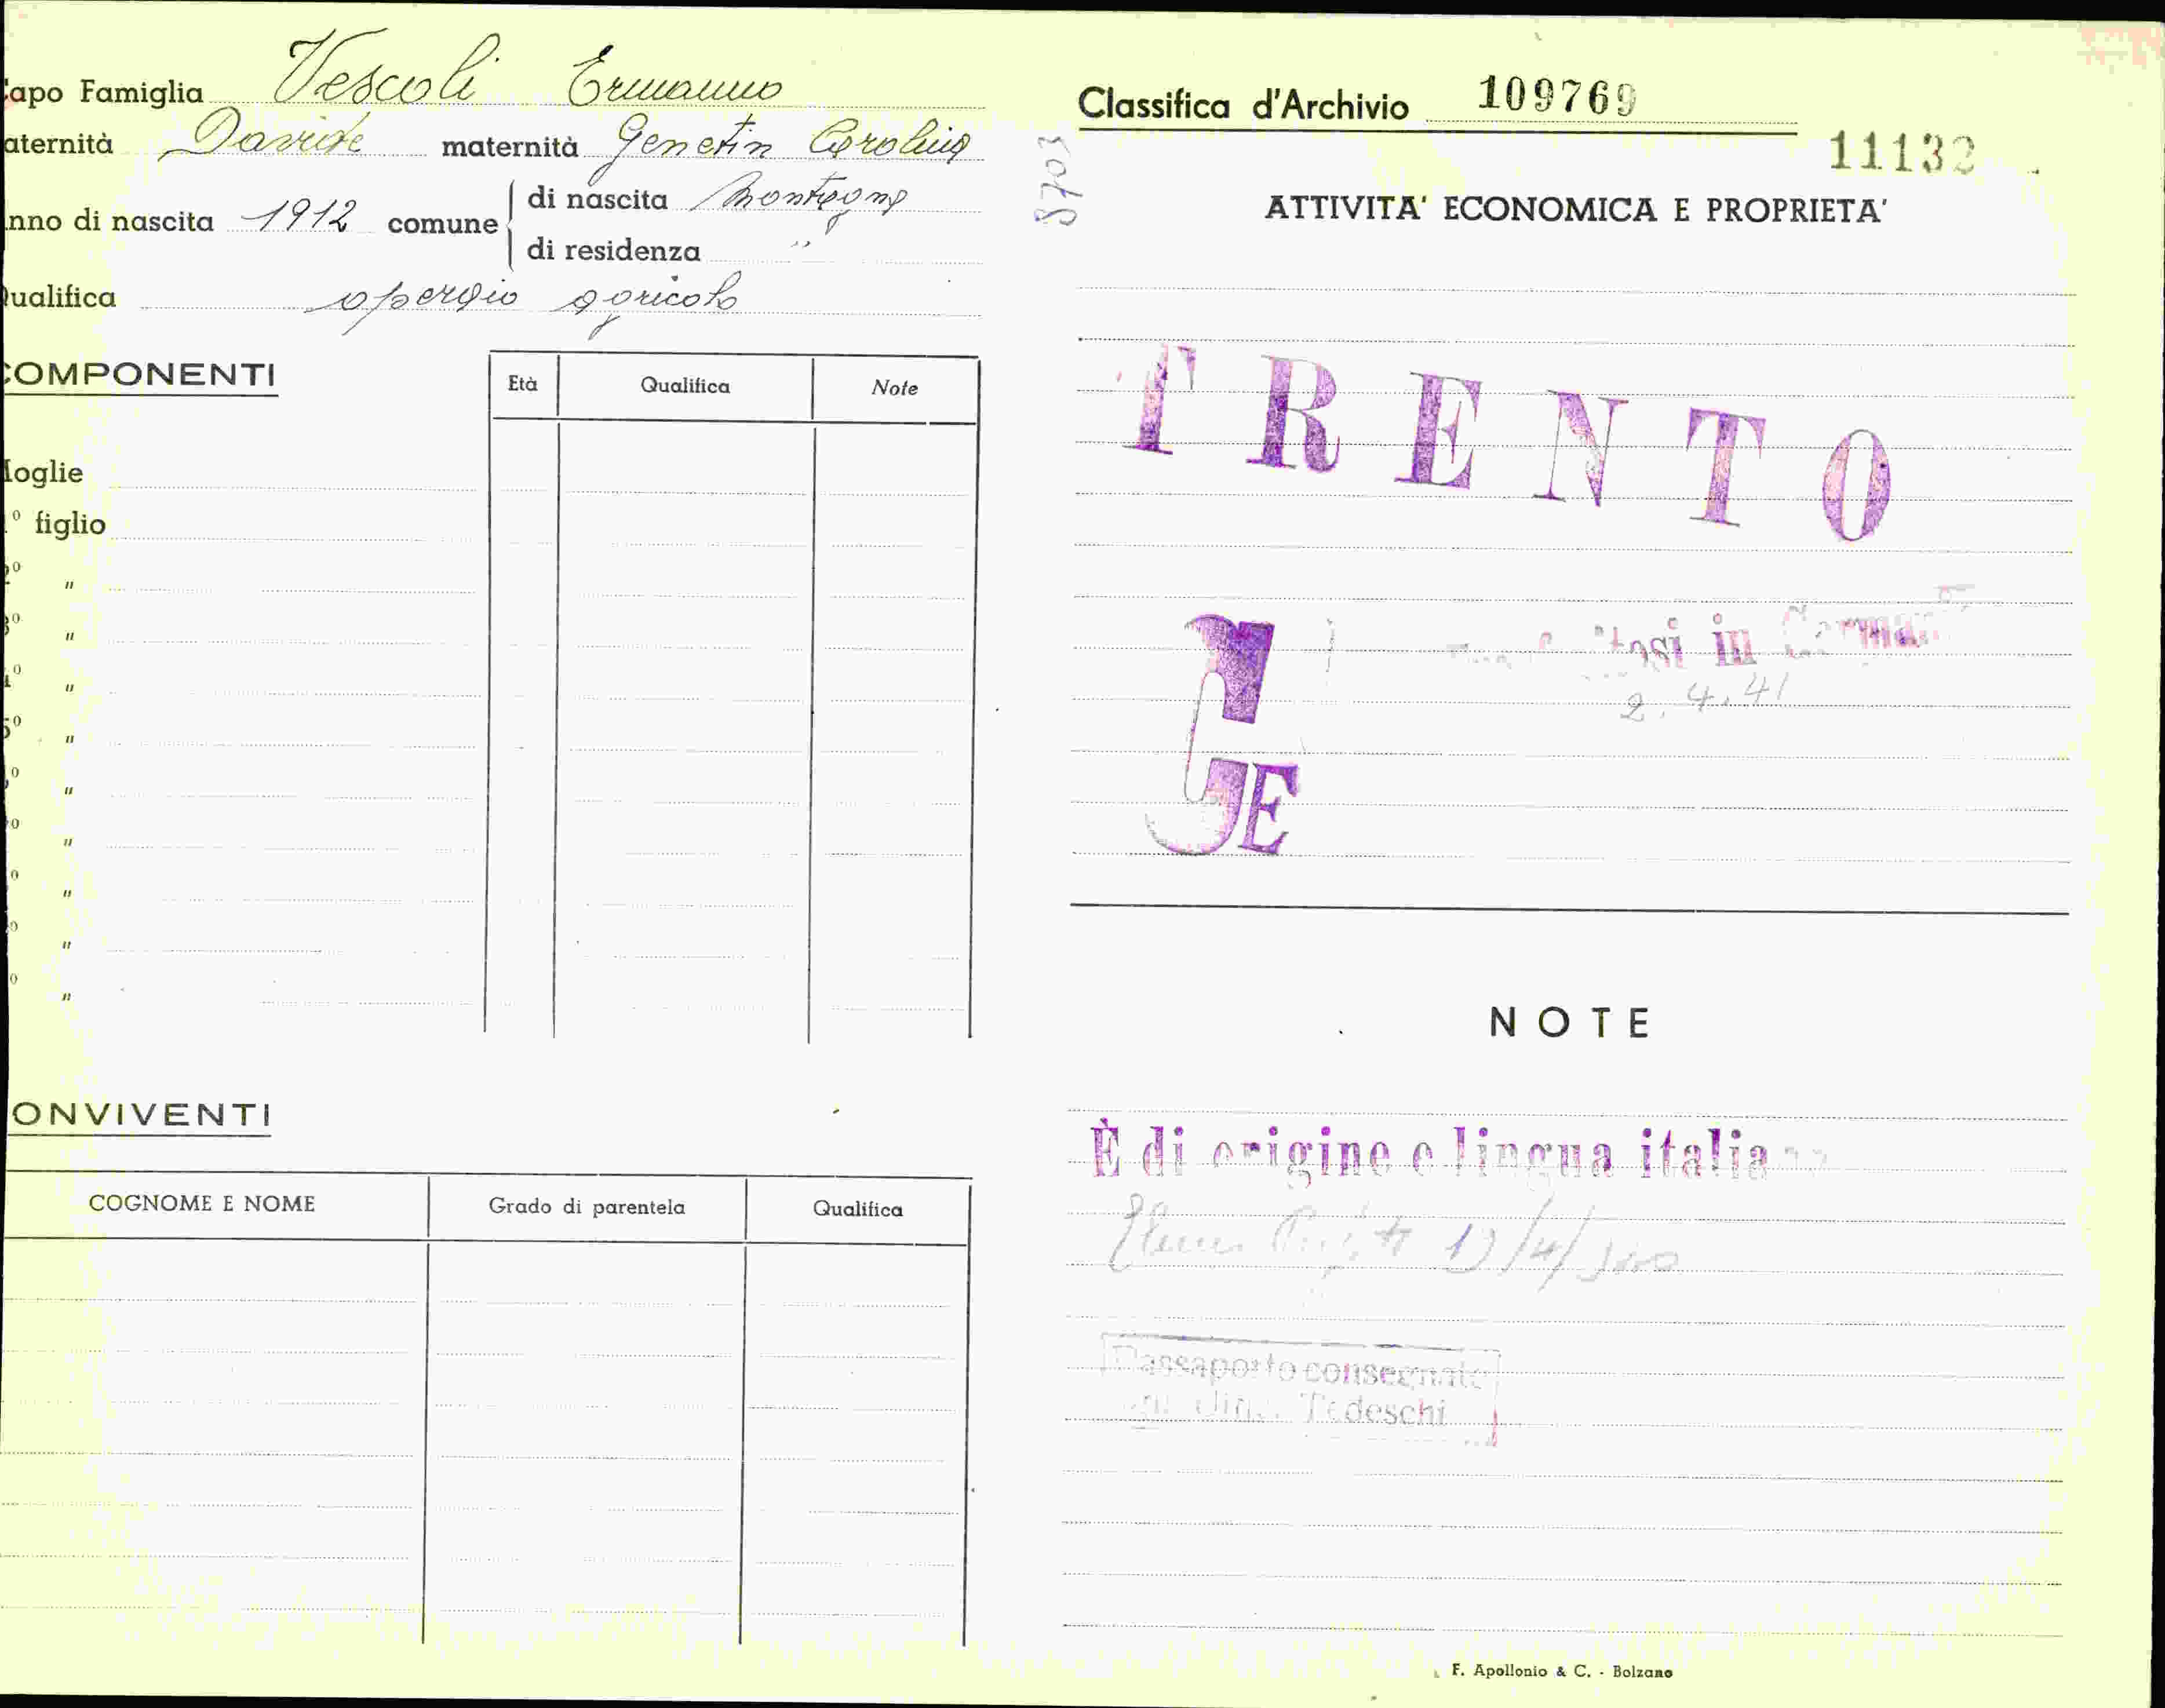 apo Famiglia Vescoli Ermanno
aternità Davide maternità Genetin Carolina
nno di nascita 1912 comune di nascita Montagna
di residenza "
ualifica operaio agricolo
COMPONENTI
Età Qualifica Note
oglie
° figlio
º "
3º "
º "
5º "
º "
º "
º "
º "
º "
ONVIVENTI
COGNOME E NOME Grado di parentela Qualifica
Classifica d'Archivio 109769
11132
8703
ATTIVITA' ECONOMICA E PROPRIETA'
TRENTO
tosi in Germa
2.4.41
GE
NOTE
È di origine e lingua italia
Passaporto consegnato
Tedeschi
F. Apollonio & C. - Bolzano